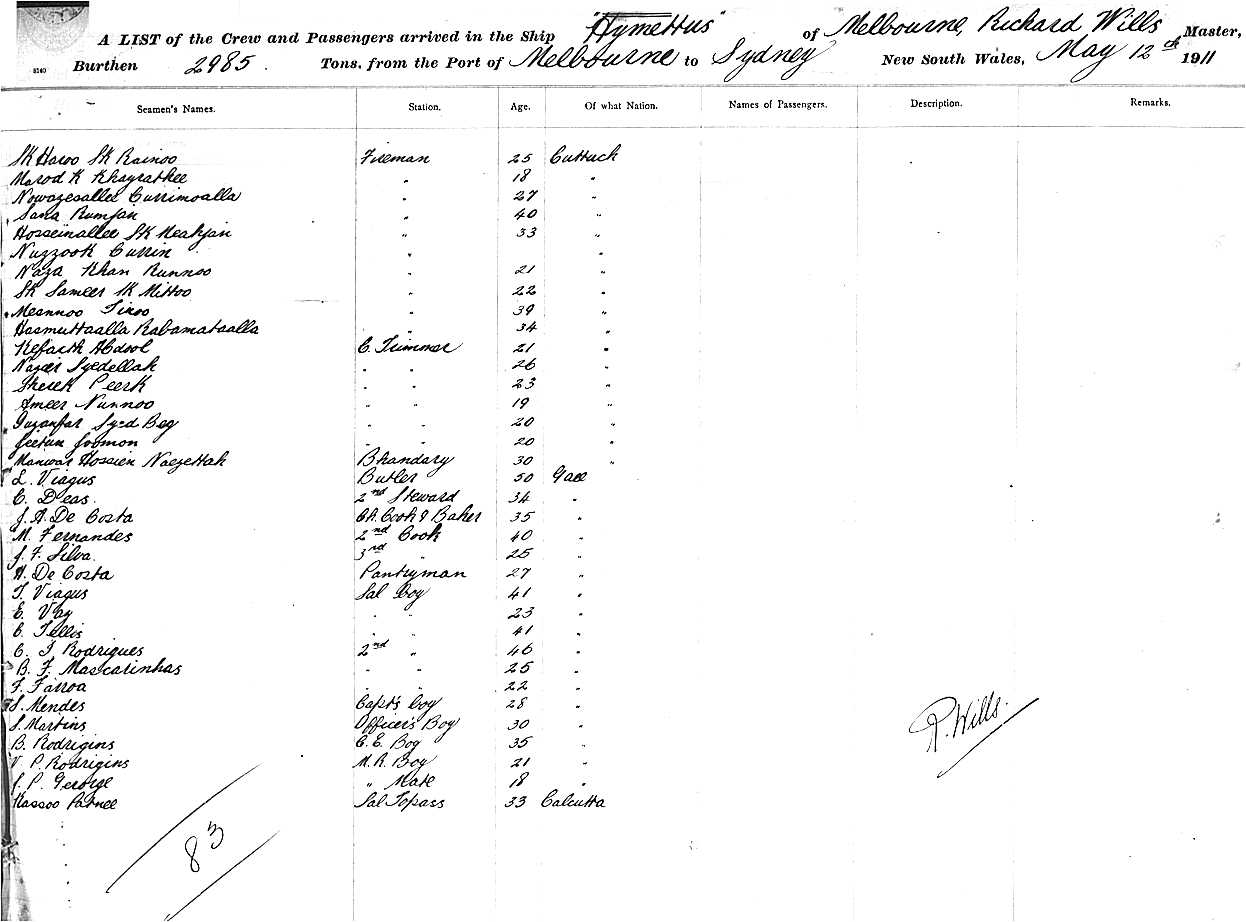 A LIST of the Crew and Passengers arrived in the Ship "Hymettus" of Melbourne, Richard Wills Master,
Burthen 2985 Tons, from the Port of Melbourne to Sydney New South Wales, May 12th 1911
8140
Seamen's Names. Station. Age. Of what Nation. Names of Passengers. Description. Remarks.
SK Haroo SK Rainoo Fireman 25 Cuttack
Marod K Khayrathee " 18 "
Nowazesallee Currimoalla " 27 "
Sana Rumjan " 40 "
Hosseinallee SK Meahjan " 33 "
Nuzzook Currin " "
Naza Khan Runnoo " 21 "
SK Sameer SK Mittoo " 22 "
Meannoo Tinoo " 39 "
Hasmuttaalla Rabamataalla " 34 "
Kefaith Abdool C. Trimmer 21 "
Nazeer Syedellah " " 26 "
Sheek Peerk " " 23 "
Ameer Nunnoo " " 19 "
Guzanfar Syed Beg " " 20 "
Jeetun Joomon " " 20 "
Manwar Hossien Naezettah Bhandary 30 "
L. Viagus Butler 50 Goa
C. Deas. 2nd Steward 34 "
J. A. De Costa Ch. Cook & Baker 35 "
M. Fernandes 2nd Cook 40 "
J. F. Silva. 3rd " 25 "
H. De Costa Pantryman 27 "
T. Viagus Sal boy 41 "
E. Vaz " " 23 "
C. Tellis " " 41 "
C. J. Rodrigues 2nd " 46 "
B. F. Mascarinhas " " 25 "
F. Farroa " " 22 "
S. Mendes Capt's boy 28 "
S. Martins Officer's Boy 30 "
B. Rodrigins C. E. Boy 35 "
V. P. Rodrigins M. R. Boy 21 "
J. P. George " Mate 18 "
Kassoo Patnee Sal Topass 33 Calcutta
R. Wills.
83